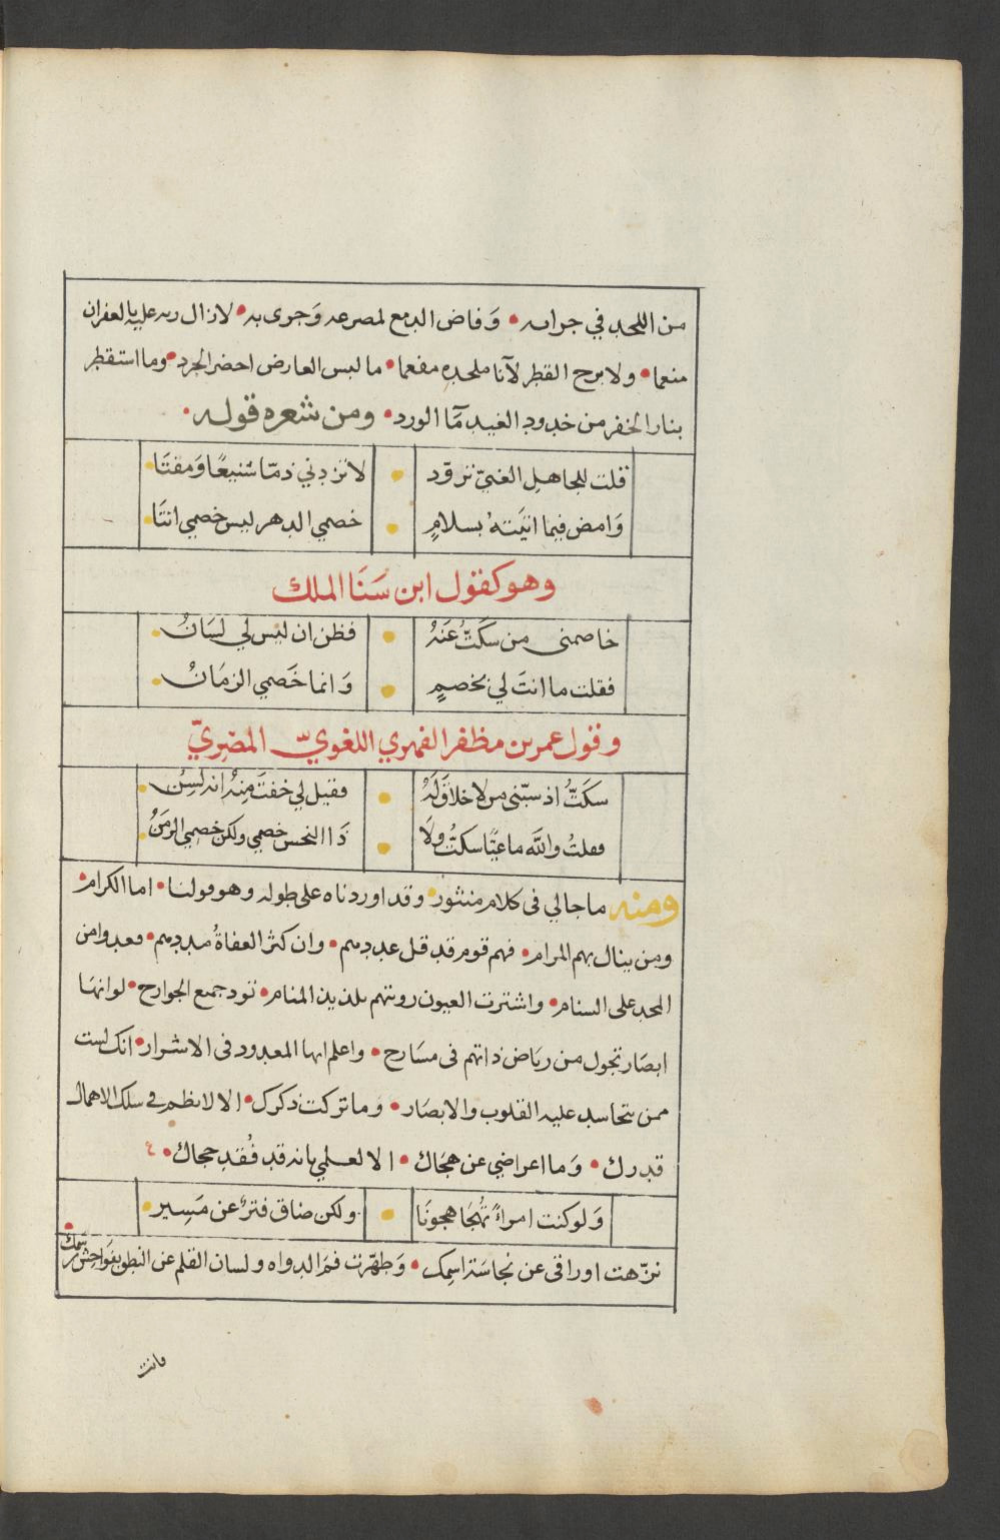 من اللحد في جرابه • وَفاض الدمع لمصرعه وَجرى به • لازال ربه عليه بالغفران
منعما • ولا برح القطر لآناء ملحده مفعما • ما لبس العارض اخضر الجرد • وما استقطر
بنار الخفر من خدود الغيد مآ الورد • ومن شعره قوله •
قلت للجاهل الغبيّ تزوّد • لا تزدني ذمّا شنيعًا وَمقتَا
وَامض فيما اتيَته بسلامٍ • خصمي الدهر ليس خصمي انتَا
وهو كقول ابن سَنَا الملك
خاصمنى من سكَتُّ عَنهُ • فظن ان ليس لي لسَانُ
فقلت ما انتَ لي بخصمٍ • وَانما خَصمي الزمَانُ
وقول عمر بن مظفر الفهري اللغويّ المضِريّ
سكَتُّ اذ سبّنى من لا خلاقَ لَهُ • فقيل لي خفتَ مِنهُ انه لسِن
فقلتُ والله ما عيًّا سكتُّ ولَا • ذَا النحس خصمي ولكن خصمي الزمَنُ
ومنه ما جا لي فى كلام منثور • وقد اوردناه على طوله وهو قولنا • اما الكرام •
ومن ينال بهم المرام • فهم قوم قد قل عديدهم • وان كثر العفاةُ مديدهم • قعدوا من
المجد على السنام • واشترت العيون رويتهم بلذيذ المنام • تود جميع الجوارح • لو انها
ابصَار تجول من ريَاض ذاتهم فى مسَارح • واعلم ايها المعدود فى الاشرار • انك لست
ممن يتحاسد عليه القلوب والابصَار • وما تركت ذكرك • الا لانظم في سلك الاهمال
قدرك • وَما اعراضي عن هجَاك • الا لعلمي بانه قد فُقد حجاك •
وَلو كنت امراءً تُهجَا هجونَا • ولكن ضاق فترٌ عن مَسِير •
نزّهت اوراقى عن نجاسَة اسمِك • وَطهّرت فمَ الدواه ولسان القلم عن النطق بفَواحِش رسمك •
وانت